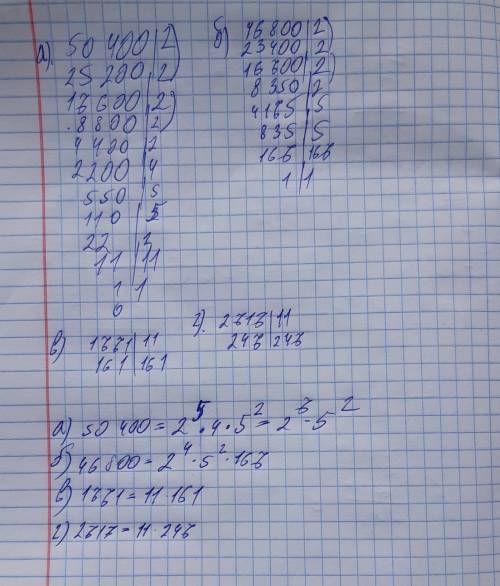 а). 50 400|2
25 200|2
17600|2
8800|2
4400|2
2200|4
550|5
110|5
22|2
11|11
1|1
0
б) 46800|2
23400|2
16700|2
8350|2
4175|5
835|5
167|167
1|1
в) 1771|11
161|161
г). 2717|11
247|247
а) 50 400 = 2⁵·4·5² = 2⁷·5²
б) 46800 = 2⁴·5²·167
в) 1771 = 11·161
г) 2717 = 11·247